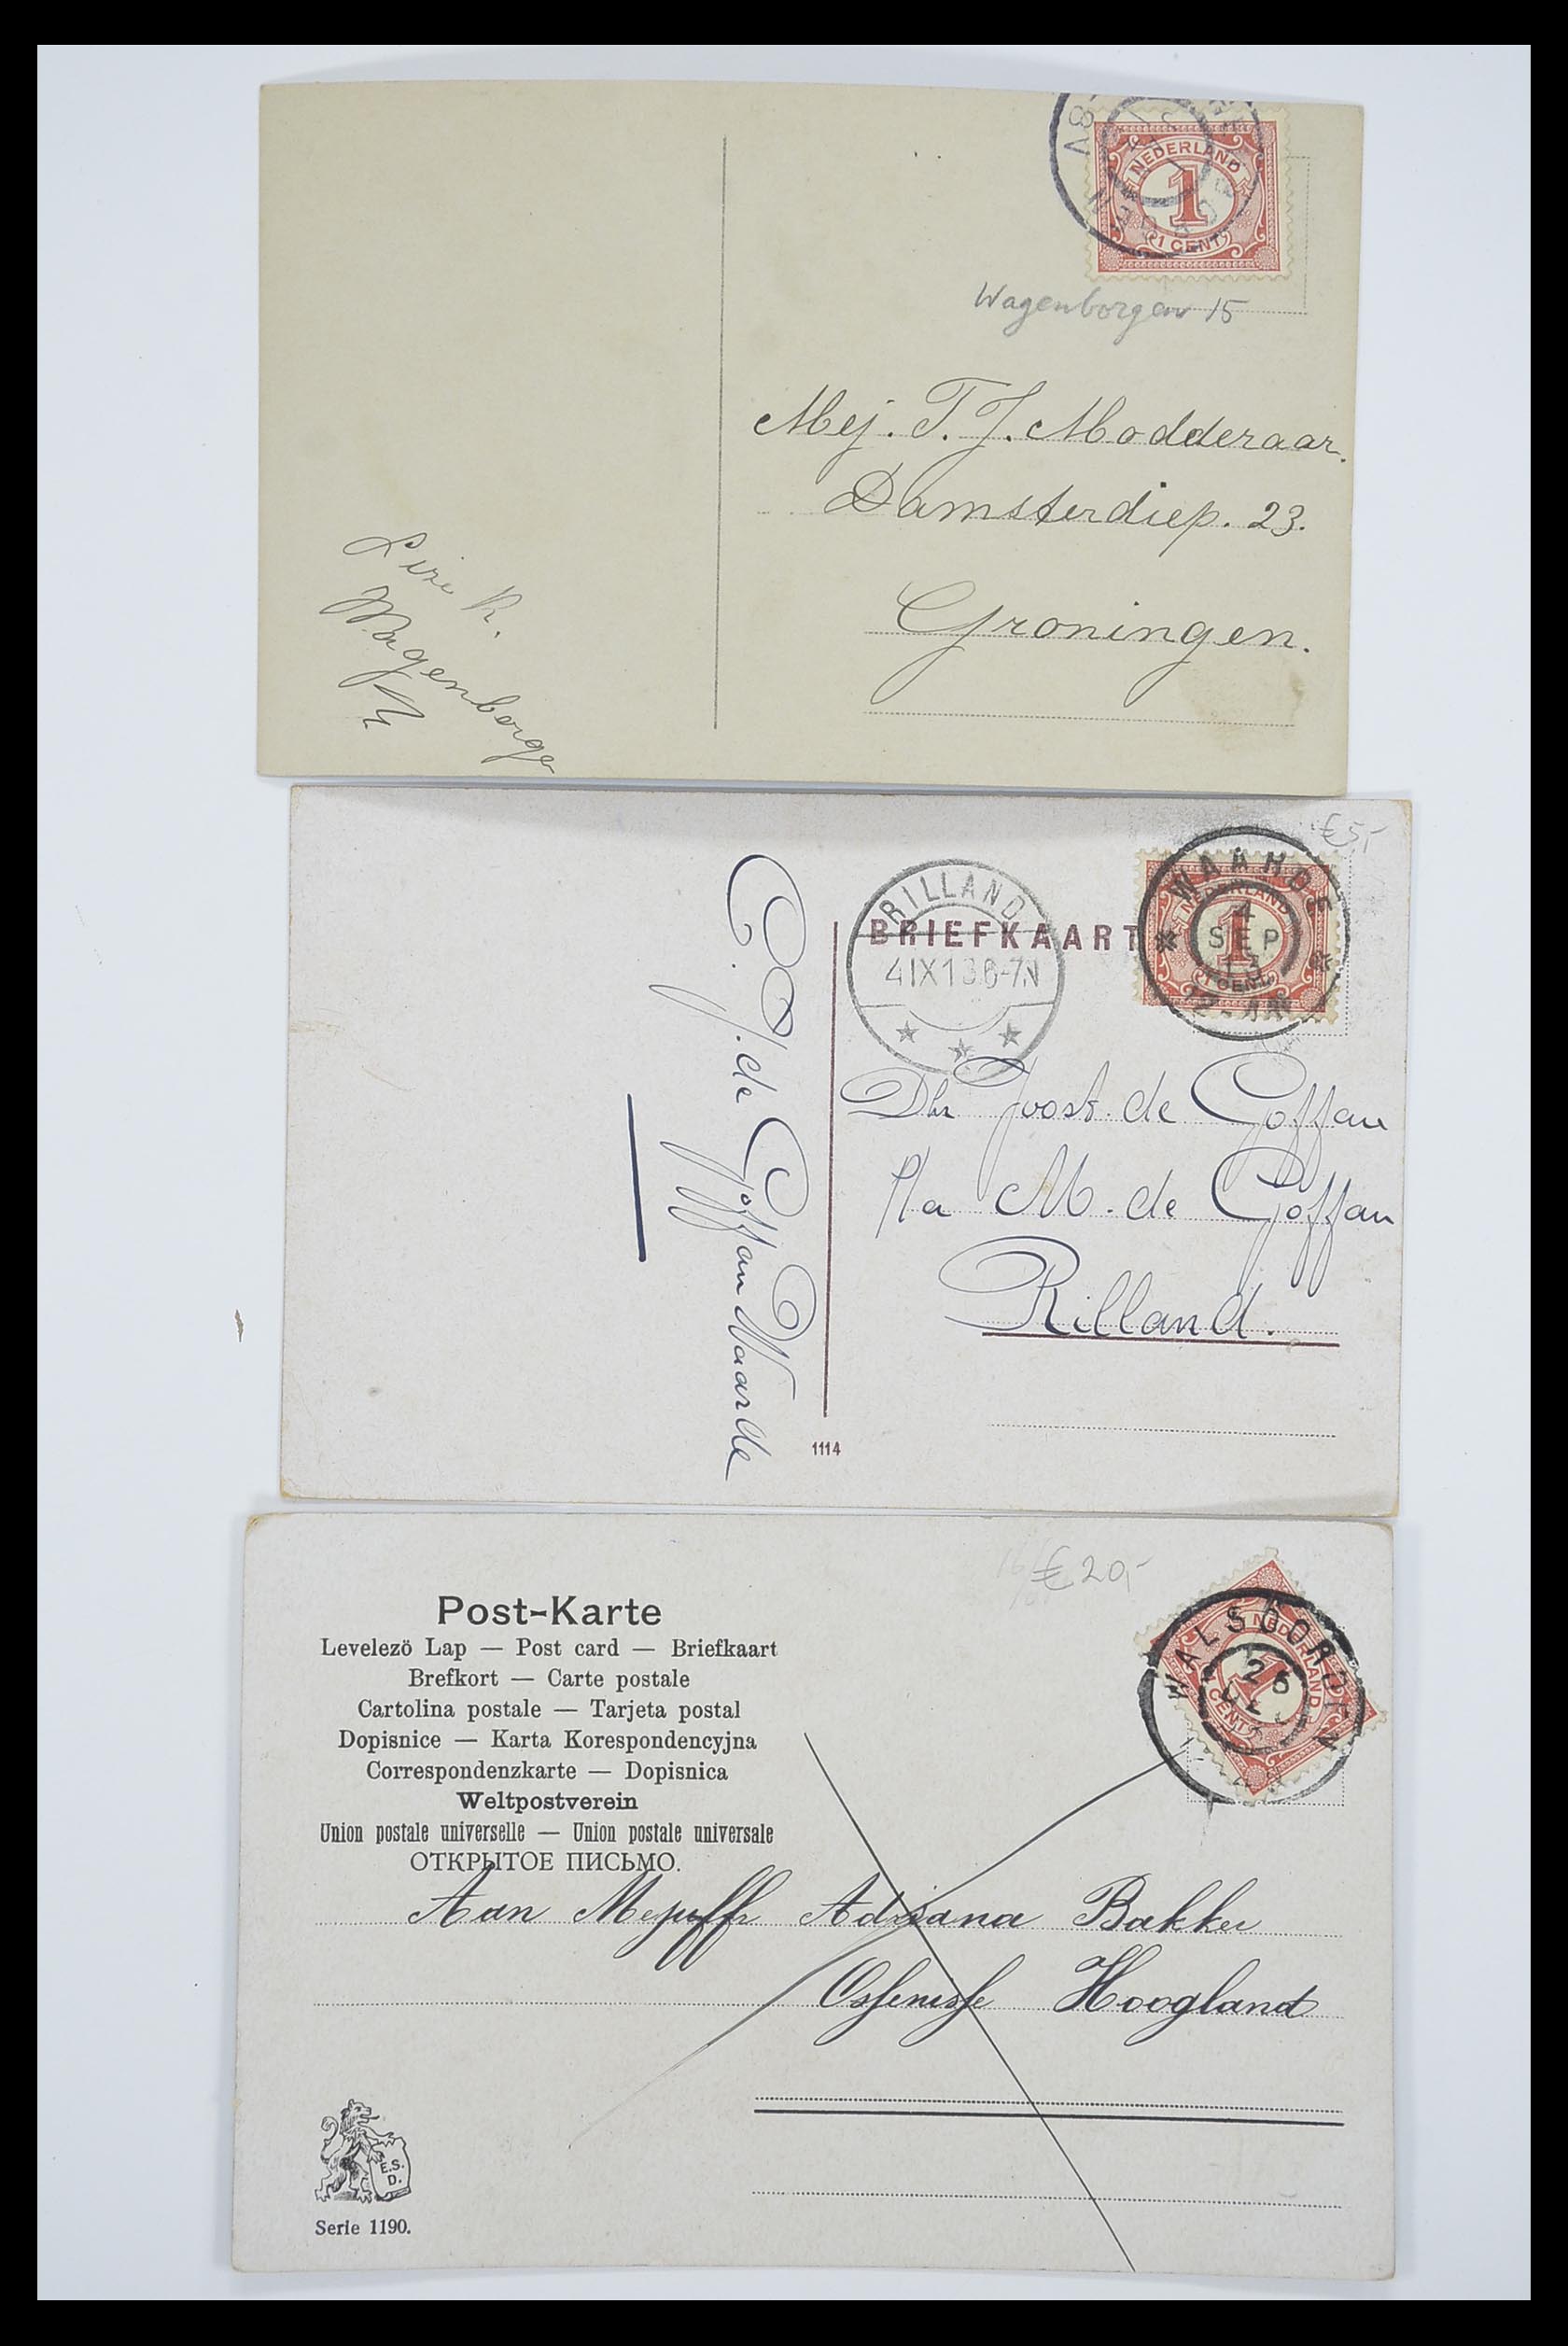 NEDERLAND
1
1 CENT
Wagenborgen 15
Mej. T. J. Modderaar.
Damsterdiep. 23.
Groningen.
R.
€5,-
WAARDE
4
SEP
NEDERLAND
1
RILLAND
4 IX 13 6-7N
BRIEFKAART
Dhr Joost de Goffau
p/a M. de Goffau
Rilland.
J. de Goffau Waarde
1114
€20,-
WALSOORDEN
26
NEDERLAND
1
CENT
Post-Karte
Levelezö Lap — Post card — Briefkaart
Brefkort — Carte postale
Cartolina postale — Tarjeta postal
Dopisnice — Karta Korespondencyjna
Correspondenzkarte — Dopisnica
Weltpostverein
Union postale universelle — Union postale universale
ОТКРЫТОЕ ПИСЬМО.
Aan Mejuffr Adriana Bakker
Ossenisse Hoogland
E.S.
D.
Serie 1190.